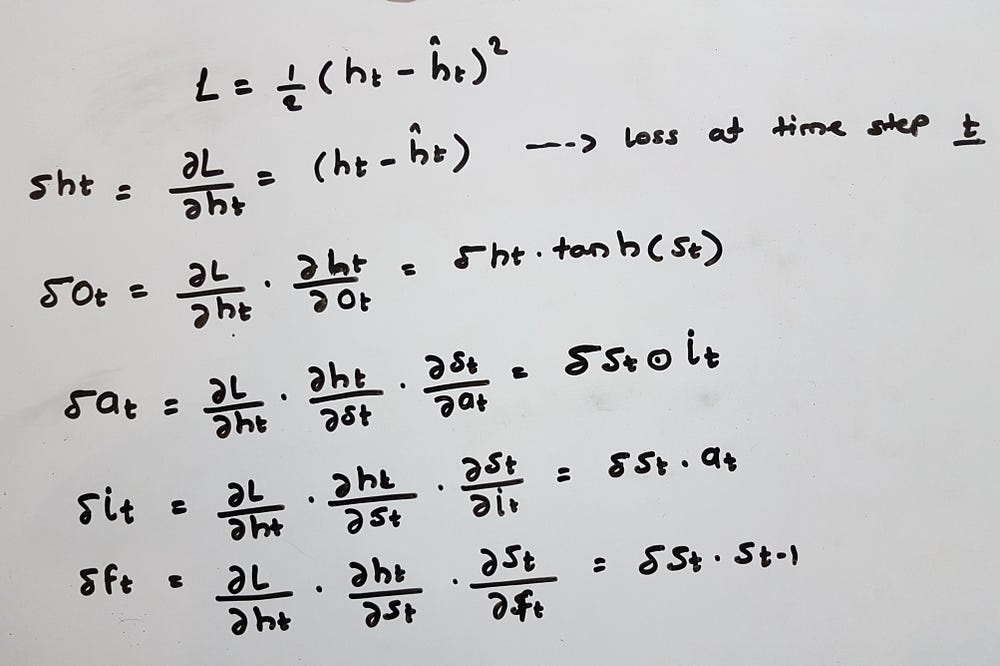 L = 1/2 (ht - ĥt)²
δht = ∂L/∂ht = (ht - ĥt) ---> loss at time step t
δOt = ∂L/∂ht · ∂ht/∂Ot = δht · tanh(St)
δat = ∂L/∂ht · ∂ht/∂St · ∂St/∂at = δSt ⊙ it
δit = ∂L/∂ht · ∂ht/∂St · ∂St/∂it = δSt · at
δft = ∂L/∂ht · ∂ht/∂St · ∂St/∂ft = δSt · St-1